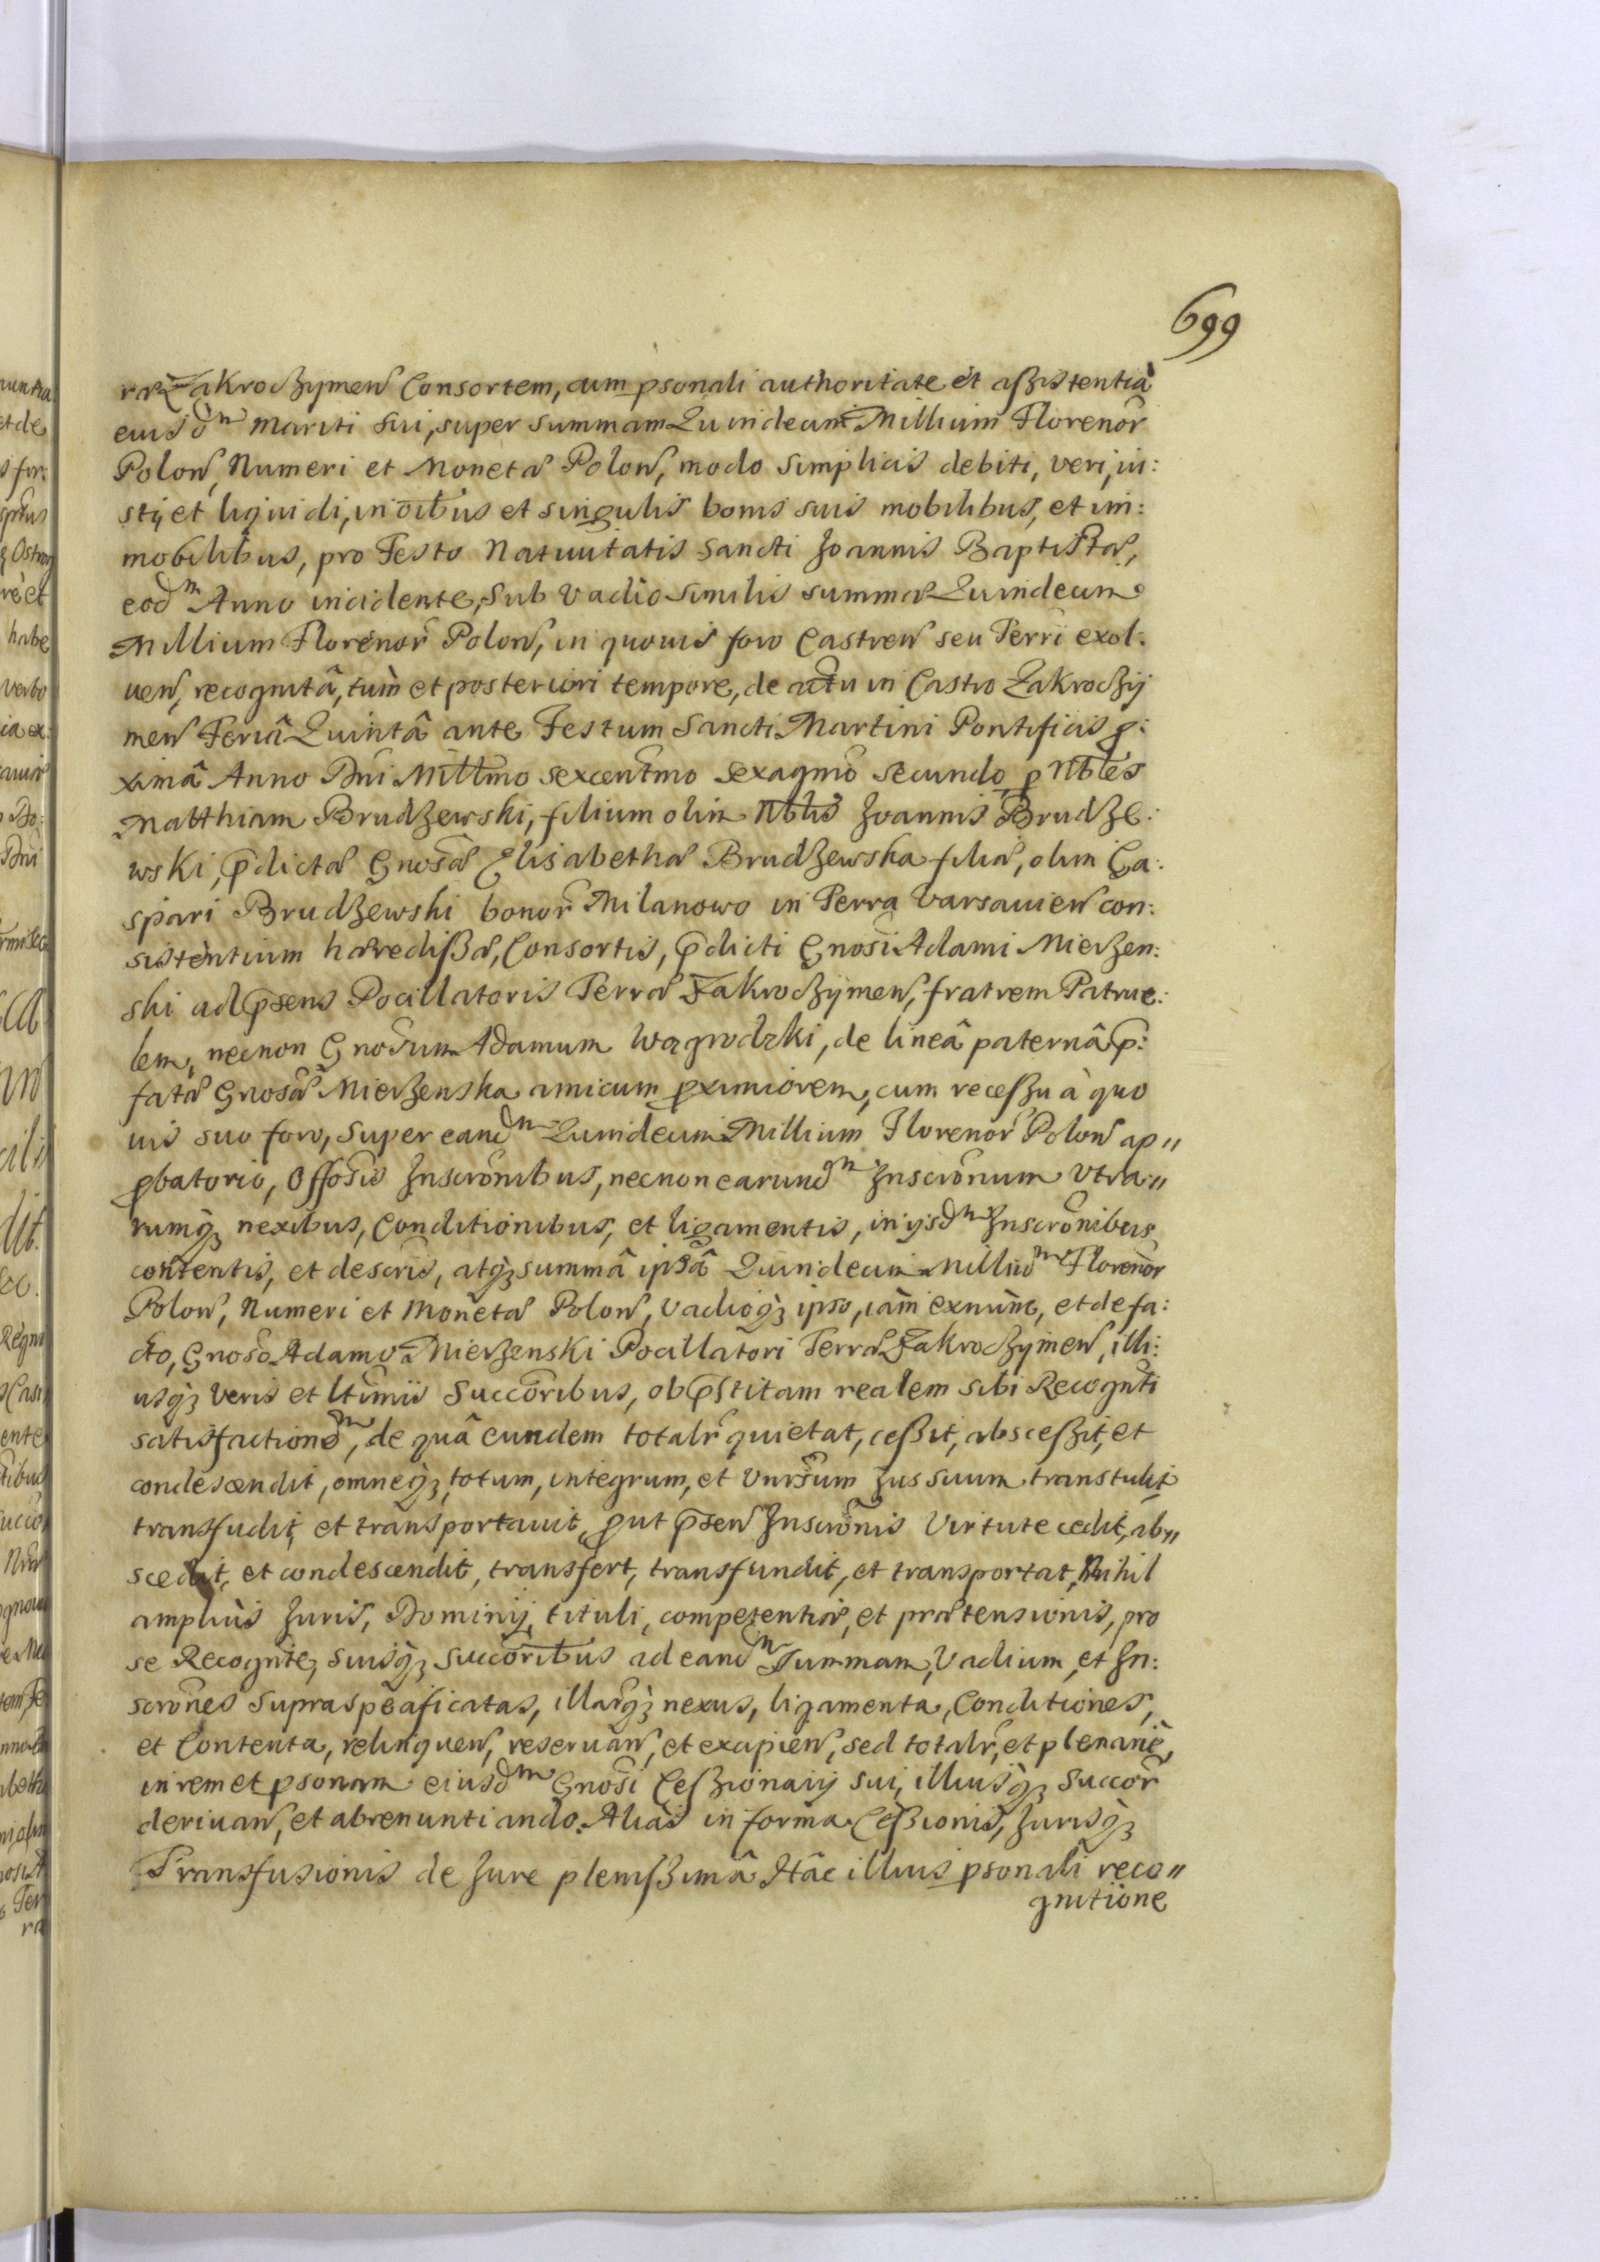 699
ræ Zakroczymen Consortem, cum psonali authoritate et assistentia
eiusdm Mariti Sui, super summam Quindecim Millium Florenor
Polon, Numeri et Monetæ Polon, modo simplicis debiti, veri, iu:
stij et liquidi, in oibus et singulis bonis suis mobilibus, et im:
mobilibus, pro Festo Natiuitatis Sancti Joannis Baptistæ,
eodm Anno incidente, Sub Vadio similis summæ Quindecim
Millium Florenor Polon, in quouis foro Castren seu Terri exol:
uen, recognitâ, tùm et posteriori tempore, de actu in Castro Zakroczy
men Feriâ Quintâ ante Festum Sancti Martini Pontificis p:
ximâ Anno Dni Millmo sexcentmo sexagmo secundo, p Nbles
Matthiam Brudzewski, filium olim Nblis Joannis Brudze:
wski, pdictæ Gnosæ Elisabethæ Brudzewska filiæ, olim Ga:
spari Brudzewski bonor Milanowo in Terra Varsauien con:
sistentium hæredissæ, Consortis, pdicti Gnosi Adami Mierzen:
ski ad psens Pocillatoris Terræ Zakroczymen, fratrem Patrue:
lem, necnon Gnosum Adamum Wagrodzki, de lineâ paternâ p:
fatæ Gnosæ Mierzenska amicum pximiorem, cum recessu à quo
uis suo foro, super eandm Quindecim Millium Florenor Polon ap"
pbatorio, Offosis Inscronibus, necnon earundm Inscronum Vtra"
rumq; nexibus, Conditionibus, et ligamentis, in ijsdm Inscronibus
contentis, et descris, atq; summâ ipsâ Quindecim Milliudm Florenor
Polon, Numeri et Monetæ Polon, Vadioq; ipso, iàm exnùnc, et de fa:
cto, Gnoso Adamo Mierzenski Pocillatori Terræ Zakroczymen, illi:
usq; veris et ltimis Succoribus, ob pstitam realem sibi Recognti
satisfactionem, de quâ eundem totalr quietat, cessit, abscessit, et
condescendit, omneq; totum, integrum, et Vnirsum Jus suum transtulit
transfudit, et transportauit, put psen Inscronis Virtute cedit, ab"
scedit, et condescendit, transfert, transfundit, et transportat, Nihil
ampliùs Juris, Dominij, tituli, competentiæ, et prætensionis, pro
se Recognte, suisq; Succoribus ad eandm Summam, Vadium, et In:
scrones supraspecificatas, illarq; nexus, ligamenta, Conditiones,
et Contenta, relinquen, reseruan, et excipien, sed totalr, et plenariè,
in rem et psonam eiusdm Gnosi Cessionarij sui, illiusq; Succor
deriuan, et abrenuntiando. Aliàs in forma Cessionis, Jurisq;
Transfusionis de Jure plenissimâ Hâc illius psonali reco"
gnitione